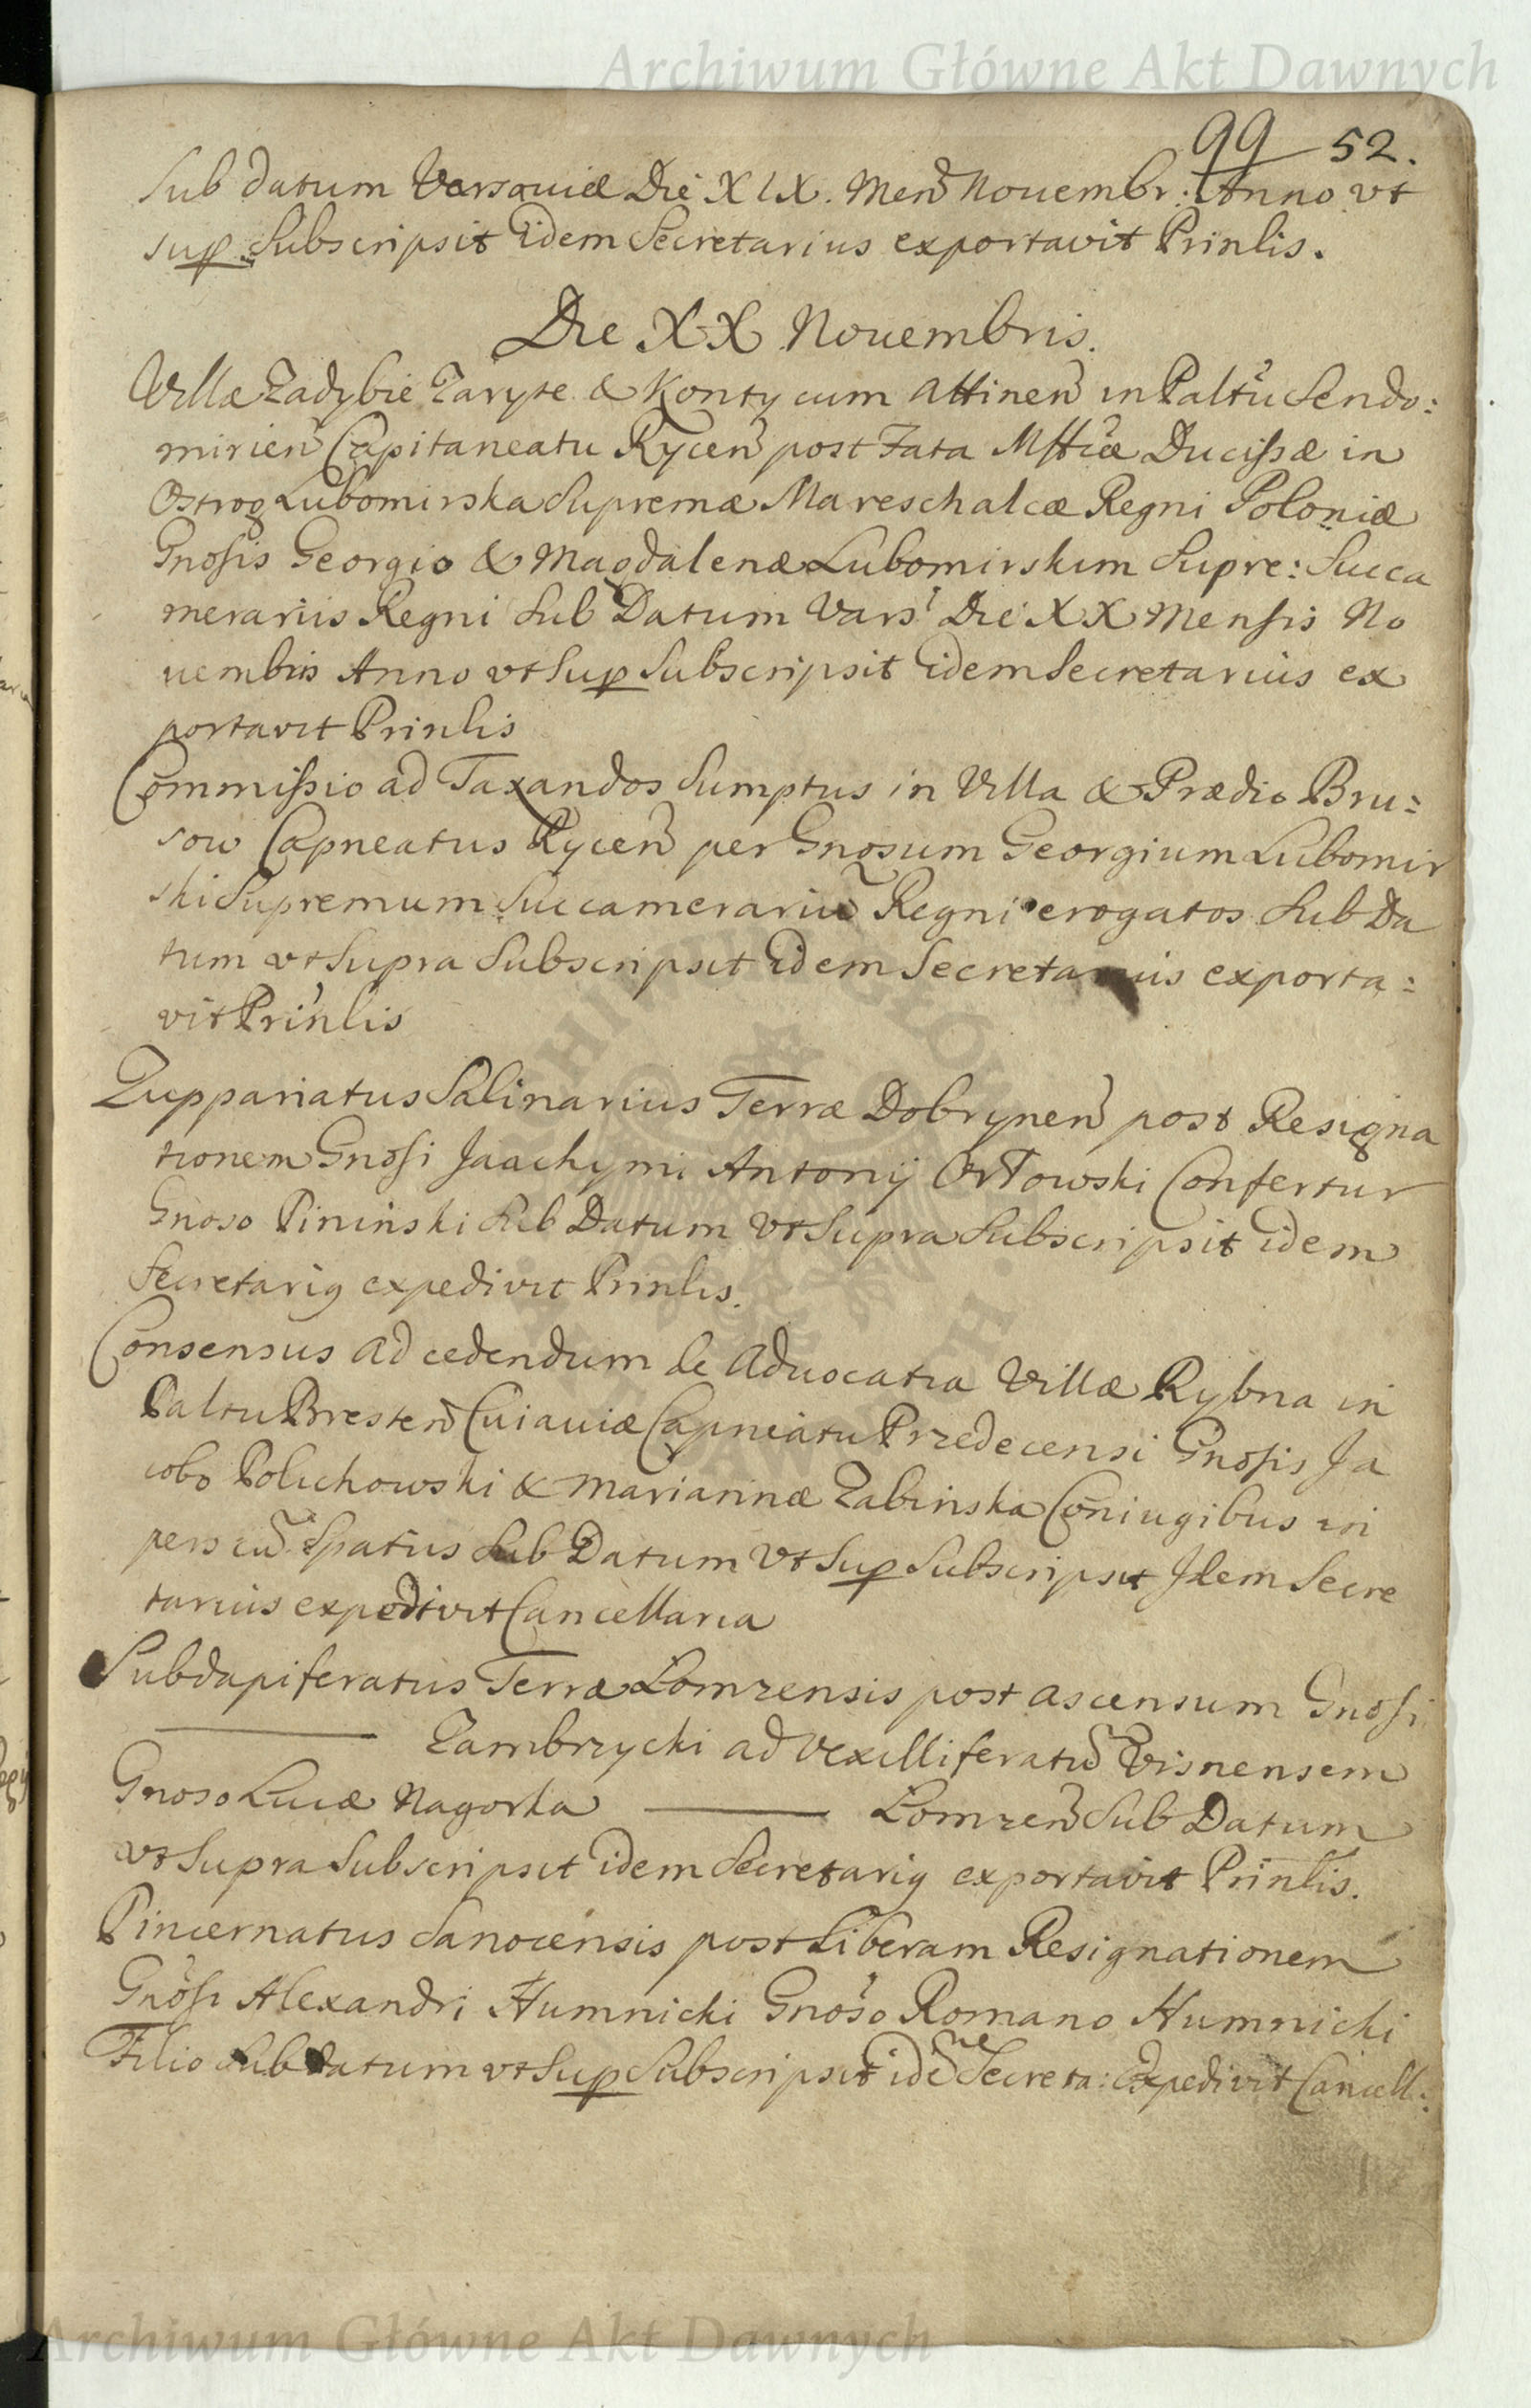 Archiwum Główne Akt Dawnych
99 52.
Sub datum Varsaviæ Die XIX. Men Nouembr: Anno vt
sup Subscripsit idem Secretarius exportavit Prinlis.
Die XX Nouembris.
Villæ Zadybie Zaryte & Konty cum Attinen in Paltu Sendo:
mirien Capitaneatu Rycen post Fata Mfticæ Ducissæ in
Ostrog Lubomirska Supremæ Mareschalcæ Regni Poloniæ
Gnosis Georgio & Magdalenæ Lubomirskim Supre: Succa
merariis Regni Sub Datum Vars Die XX Mensis No
uembris Anno vt Sup Subscripsit idem Secretarius ex
portavit Prinlis
Commissio ad Taxandos Sumptus in Villa & Prædio Bru:
sow Capneatus Rycen per Gnosum Georgium Lubomir
ski Supremum Succamerariu Regni erogatos Sub Da
tum vt Supra Subscripsit idem Secretarius exporta:
vit Prinlis
Zuppariatus Salinarius Terræ Dobrynen post Resigna
tionem Gnosi Jaachymi Antonij Orłowski Confertur
Gnoso Pininski Sub Datum Vt Supra Subscripsit idem
Secretarig expedivit Prinlis.
Consensus ad cedendum de Aduocatia Villæ Rybna in
Paltu Bresten Cuiauiæ Capneatu Przedecensi Gnosis Ja
cobo Polichowski & Mariannæ Zabinska Coniugibus in
pers cu Spatiis Sub Datum Vt Sup Subscripsit Idem Secre
tarius expedivit Cancellaria
Subdapiferatus Terræ Lomzensis post ascensum Gnosi
Zambrzycki ad Vexilliferatu Visnensem
Gnoso Lucæ Nagorka Lomzen Sub Datum
vt Supra Subscripsit idem Secretarig exportavit Prinlis.
Pincernatus Sanocensis post Liberam Resignationem
Gnosi Alexandri Humnicki Gnoso Romano Humnicki
Filio Sub Datum vt Sup Subscripsit ide Secreta: expedivit Cancell:
Archiwum Główne Akt Dawnych